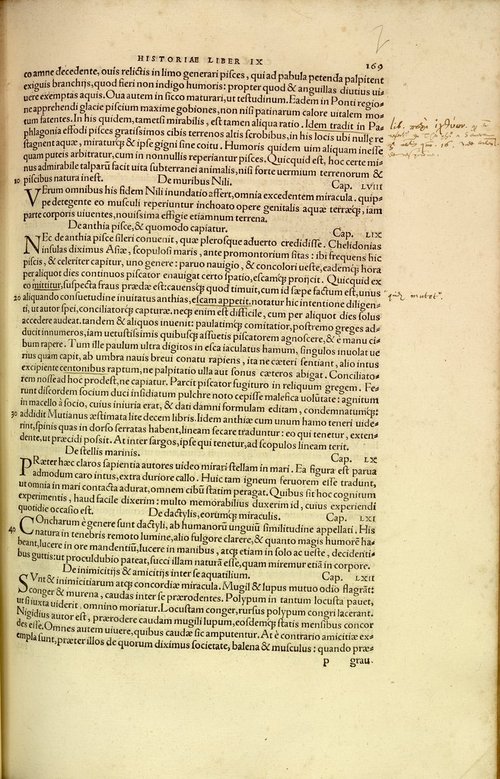 HISTORIAE LIBER IX
169
co amne decedente, ouis relictis in limo generari pisces, qui ad pabula petenda palpitent
exiguis branchijs, quod fieri non indigo humoris: propter quod & anguillas diutius ui-
uere exemptas aquis. Oua autem in sicco maturari, ut testudinum. Eadem in Ponti regio-
ne apprehendi glacie piscium maxime gobiones, non nisi patinarum calore uitalem mo-
tum fatentes. In his quidem, tametsi mirabilis, est tamen aliqua ratio. Idem tradit in Pa-
phlagonia effodi pisces gratissimos cibis terrenos altis scrobibus, in his locis ubi nulle re
stagnent aquæ, miraturq; & ipse gigni sine coitu. Humoris quidem uim aliquam inesse
quam puteis arbitratur, cum in nonnullis reperiantur pisces. Quicquid est, hoc certe mi-
nus admirabile talparū facit uita subterranei animalis, nisi forte uermium terrenorum &
10 piscibus natura inest. De muribus Nili. Cap. LVIII
VErum omnibus his fidem Nili inundatio affert, omnia excedentem miracula. quip-
pe detegente eo musculi reperiuntur inchoato opere genitalis aquæ terræq;, iam
parte corporis uiuentes, nouissima effigie etiamnum terrena.
De anthia pisce, & quomodo capiatur. Cap. LIX
NEc de anthia pisce sileri conuenit, quæ plerosque aduerto credidisse. Chelidonias
insulas diximus Asiæ, scopulosi maris, ante promontorium sitas: ibi frequens hic
piscis, & celeriter capitur, uno genere: paruo nauigio, & concolori ueste, eademq; hora
per aliquot dies continuos piscator enauigat certo spatio, escamq; proijcit. Quicquid ex
eo mittitur, suspecta fraus prædæ est: cauensq; quod timuit, cum id sæpe factum est, unus
20 aliquando consuetudine inuitatus anthias, escam appetit. notatur hic intentione diligen-
ti, ut autor spei, conciliatorq; capturæ. neq; enim est difficile, cum per aliquot dies solus
accedere audeat. tandem & aliquos inuenit: paulatimq; comitatior, postremo greges ad-
ducit innumeros, iam uetustissimis quibusq; assuetis piscatorem agnoscere, & e manu ci-
bum rapere. Tum ille paulum ultra digitos in esca iaculatus hamum, singulos inuolat ue
rius quam capit, ab umbra nauis breui conatu rapiens, ita ne cæteri sentiant, alio intus
excipiente centonibus raptum, ne palpitatio ulla aut sonus cæteros abigat. Conciliato-
rem nosse ad hoc prodest, ne capiatur. Parcit piscator fugituro in reliquum gregem. Fe-
runt discordem socium duci insidiatum pulchre noto cepisse malefica uolūtate: agnitum
in macello à socio, cuius iniuria erat, & dati damni formulam editam, condemnatumq;
30 addidit Mutianus æstimata lite decem libris. Iidem anthiæ cum unum hamo teneri uide-
rint, spinis quas in dorso serratas habent, lineam secare traduntur: eo qui tenetur, exten-
dente, ut præcidi possit. At inter sargos, ipse qui tenetur, ad scopulos lineam terit.
De stellis marinis. Cap. LX
PRæter hæc claros sapientia autores uideo mirari stellam in mari. Ea figura est parua
admodum caro intus, extra duriore callo. Huic tam igneum feruorem esse tradunt,
ut omnia in mari contacta adurat, omnem cibū statim peragat. Quibus sit hoc cognitum
experimentis, haud facile dixerim: multo memorabilius duxerim id, cuius experiendi
quotidie occasio est. De dactylis, eorumq; miraculis. Cap. LXI
COncharum è genere sunt dactyli, ab humanorū unguiū similitudine appellati. His
40 natura in tenebris remoto lumine, alio fulgore clarere, & quanto magis humorē ha-
beant, lucere in ore mandentiū, lucere in manibus, atq; etiam in solo ac ueste, decidenti-
bus guttis: ut proculdubio pateat, succi illam naturā esse, quam miremur etiā in corpore.
De inimicitijs & amicitijs inter se aquatilium. Cap. LXII
SVnt & inimicitiarum atq; concordiæ miracula. Mugil & lupus mutuo odio flagrāt:
conger & murena, caudas inter se prærodentes. Polypum in tantum locusta pauet,
ut si iuxta uiderit, omnino moriatur. Locustam conger, rursus polypum congri lacerant.
Nigidius autor est, prærodere caudam mugili lupum, eosdemq; statis mensibus concor
des esse. Omnes autem uiuere, quibus caudæ sic amputentur. At è contrario amicitiæ ex-
empla sunt, præter illos de quorum diximus societate, balena & musculus: quando præ-
p grau-